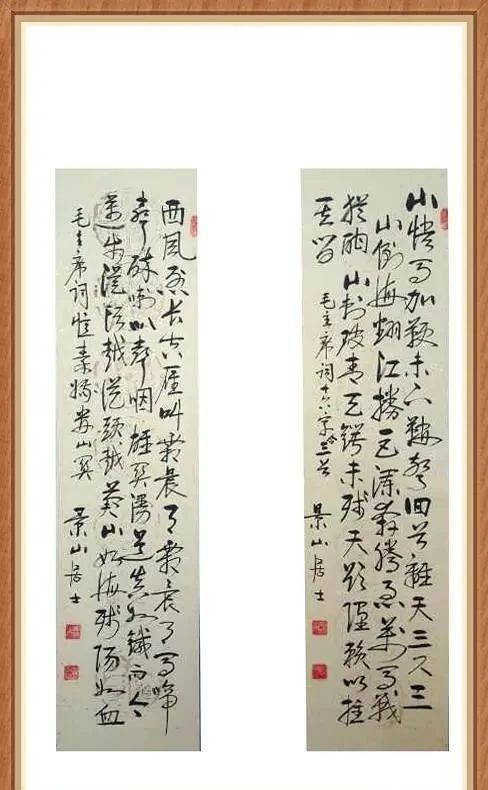 山快马加鞭未下鞍驚回首離天三尺三
山倒海翻江捲巨瀾奔腾急萬马戰
犹酣 山刺破青天鍔未残天欲堕赖以拄
其间
毛主席词十六字令三首 景山居士
西风烈长空雁叫霜晨月霜晨月马啼
聲碎喇叭聲咽雄関漫道真如鐵而今
邁步從頭越從頭越蒼山如海殘陽如血
毛主席词憶秦娥娄山関 景山居士